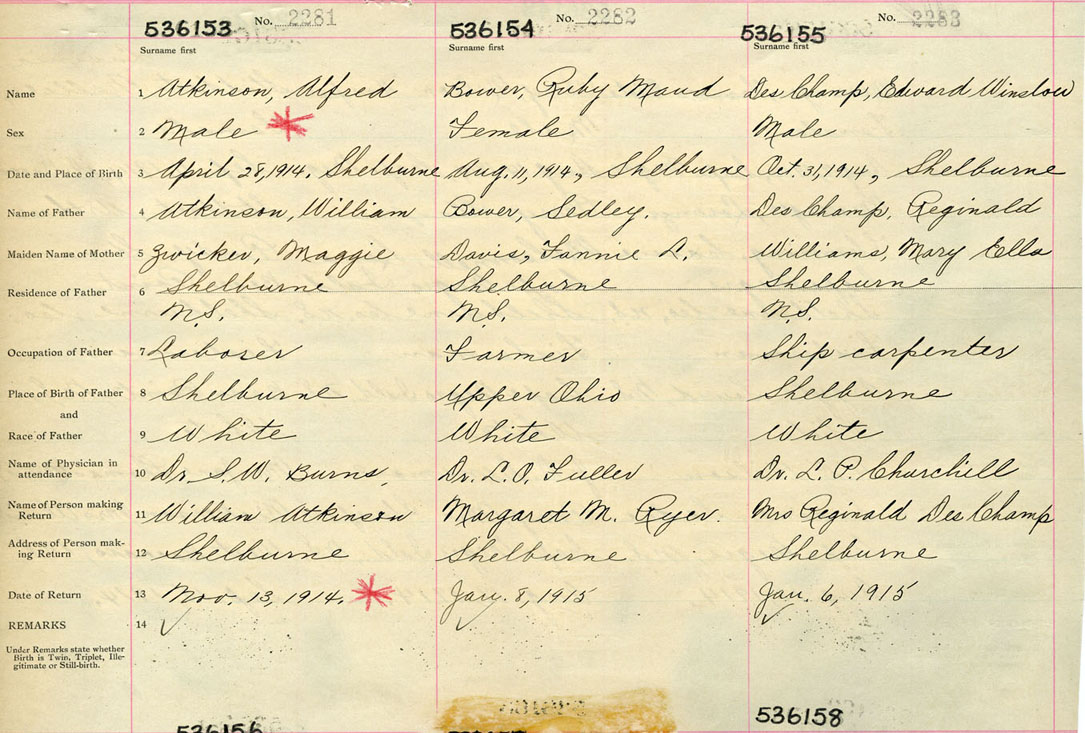 536153 No. 2281 536154 No. 2282 536155 No. 2283
Surname first Surname first Surname first
Name 1 Atkinson, Alfred Bower, Ruby Maud Des Champ, Edward Winslow
Sex 2 Male Female Male
Date and Place of Birth 3 April 28, 1914. Shelburne Aug. 11, 1914, Shelburne Oct. 31, 1914, Shelburne
Name of Father 4 Atkinson, William Bower, Sedley. Des Champ, Reginald
Maiden Name of Mother 5 Zwicker, Maggie Davis, Fannie L. Williams, Mary Ella
Residence of Father 6 Shelburne Shelburne Shelburne
N.S. N.S. N.S.
Occupation of Father 7 Laborer Farmer Ship carpenter
Place of Birth of Father 8 Shelburne Upper Ohio Shelburne
and
Race of Father 9 White White White
Name of Physician in
attendance 10 Dr. S.W. Burns, Dr. L.O. Fuller Dr. L. P. Churchill
Name of Person making
Return 11 William Atkinson Margaret M. Ryer. Mrs Reginald Des Champ
Address of Person mak-
ing Return 12 Shelburne Shelburne Shelburne
Date of Return 13 Nov. 13, 1914. Jan. 8, 1915 Jan. 6, 1915
REMARKS 14
Under Remarks state whether
Birth is Twin, Triplet, Ille-
gitimate or Still-birth.
536156 536158